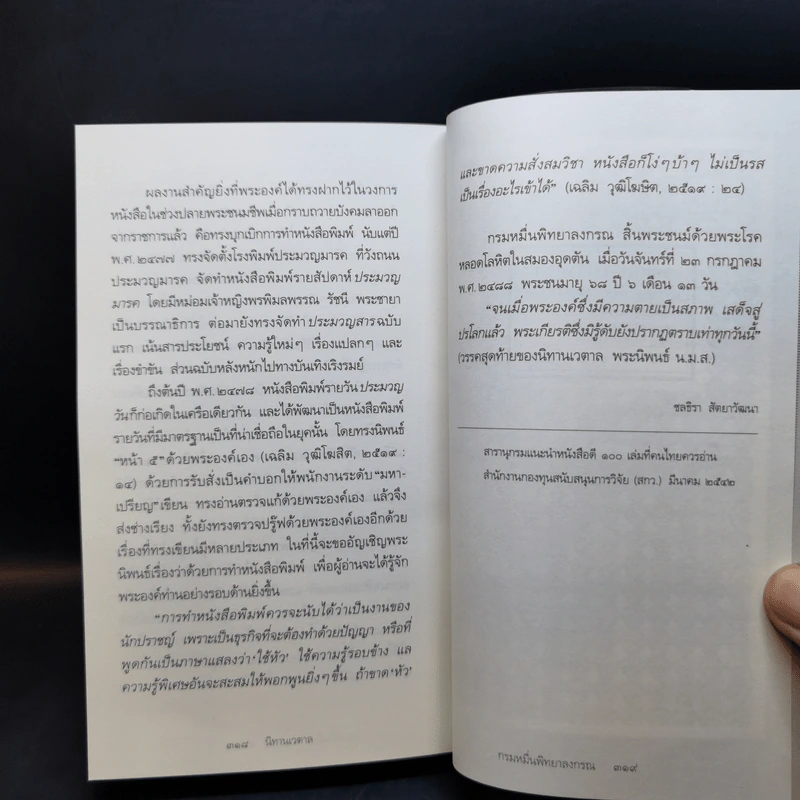 ผลงานสำคัญยิ่งที่พระองค์ได้ทรงฝากไว้ในวงการ
หนังสือในช่วงปลายพระชนมชีพเมื่อกราบถวายบังคมลาออก
จากราชการแล้ว คือทรงบุกเบิกการทำหนังสือพิมพ์ นับแต่ปี
พ.ศ.๒๔๗๗ ทรงจัดตั้งโรงพิมพ์ประมวญมารค ที่วังถนน
ประมวญมารค จัดทำหนังสือพิมพ์รายสัปดาห์ ประมวญ
มารค โดยมีหม่อมเจ้าหญิงพรพิมลพรรณ รัชนี พระชายา
เป็นบรรณาธิการ ต่อมายังทรงจัดทำ ประมวญสาร ฉบับ
แรก เน้นสารประโยชน์ ความรู้ใหม่ๆ เรื่องแปลกๆ และ
เรื่องขำขัน ส่วนฉบับหลังหนักไปทางบันเทิงเริงรมย์
ถึงต้นปี พ.ศ.๒๔๗๘ หนังสือพิมพ์รายวัน ประมวญ
วัน ก็ก่อเกิดในเครือเดียวกัน และได้พัฒนาเป็นหนังสือพิมพ์
รายวันที่มีมาตรฐานเป็นที่น่าเชื่อถือในยุคนั้น โดยทรงนิพนธ์
“หน้า ๕” ด้วยพระองค์เอง (เฉลิม วุฒิโฆสิต, ๒๕๑๙ :
๑๔) ด้วยการรับสั่งเป็นคำบอกให้พนักงานระดับ “มหา-
เปรียญ” เขียน ทรงอ่านตรวจแก้ด้วยพระองค์เอง แล้วจึง
ส่งช่างเรียง ทั้งยังทรงตรวจปรู๊ฟด้วยพระองค์เองอีกด้วย
เรื่องที่ทรงเขียนมีหลายประเภท ในที่นี้จะขออัญเชิญพระ
นิพนธ์เรื่องว่าด้วยการทำหนังสือพิมพ์ เพื่อผู้อ่านจะได้รู้จัก
พระองค์ท่านอย่างรอบด้านยิ่งขึ้น
“การทำหนังสือพิมพ์ควรจะนับได้ว่าเป็นงานของ
นักปราชญ์ เพราะเป็นธุรกิจที่จะต้องทำด้วยปัญญา หรือที่
พูดกันเป็นภาษาแสลงว่า ‘ใช้หัว’ ใช้ความรู้รอบข้าง แล
ความรู้พิเศษอันจะสะสมให้พอกพูนยิ่งๆ ขึ้น ถ้าขาด ‘หัว’
๓๑๘ นิทานเวตาล
และขาดความสั่งสมวิชา หนังสือก็โง่ๆ บ้าๆ ไม่เป็นรส
เป็นเรื่องอะไรเข้าได้” (เฉลิม วุฒิโฆษิต, ๒๕๑๙ : ๒๔)
กรมหมื่นพิทยาลงกรณ สิ้นพระชนม์ด้วยพระโรค
หลอดโลหิตในสมองอุดตัน เมื่อวันจันทร์ที่ ๒๓ กรกฎาคม
พ.ศ.๒๔๘๘ พระชนมายุ ๖๘ ปี ๖ เดือน ๑๓ วัน
“จนเมื่อพระองค์ซึ่งมีความตายเป็นสภาพ เสด็จสู่
ปรโลกแล้ว พระเกียรติซึ่งมิรู้ดับยังปรากฏตราบเท่าทุกวันนี้”
(วรรคสุดท้ายของนิทานเวตาล พระนิพนธ์ น.ม.ส.)
ชลธิรา สัตยาวัฒนา
สารานุกรมแนะนำหนังสือดี ๑๐๐ เล่มที่คนไทยควรอ่าน
สำนักงานกองทุนสนับสนุนการวิจัย (สกว.) มีนาคม ๒๕๔๒
กรมหมื่นพิทยาลงกรณ ๓๑๙